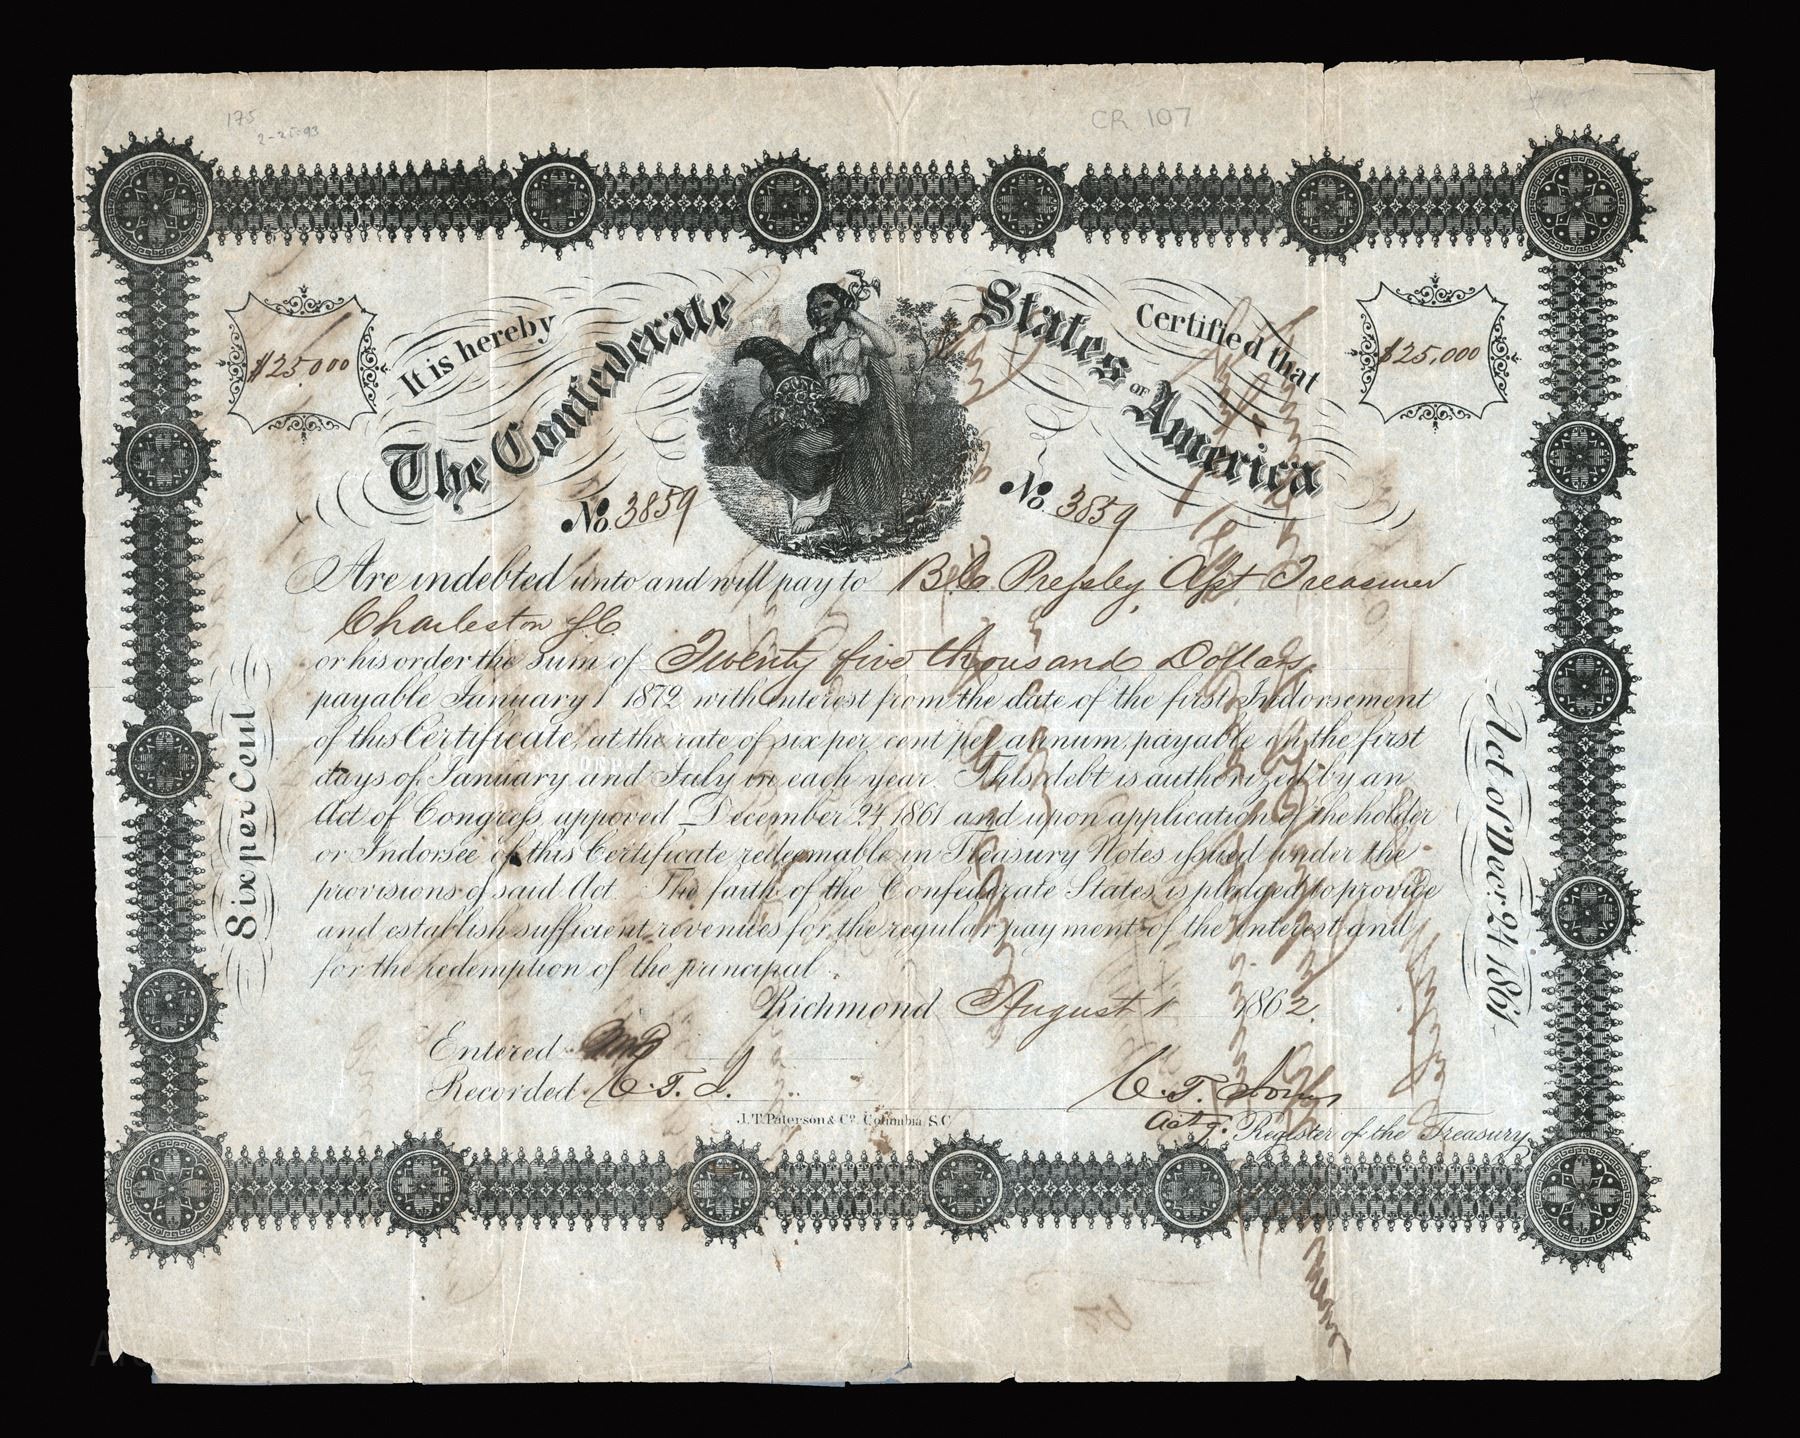 175
2-25-93
CR 107
$25.000
It is hereby
Certified that
$25,000
The Confederate States OF America
No. 3859
No. 3859
Are indebted unto and will pay to B.C. Pressley, Asst Treasurer
Charleston S.C.
or his order the sum of Twenty five thousand Dollars
payable January 1 1872 with interest from the date of the first Indorsement
of this Certificate, at the rate of six per cent per annum, payable on the first
days of January and July in each year. This debt is authorized by an
Act of Congress, appoved December 24 1861 and upon application of the holder
or Indorsee of this Certificate redeemable in Treasury Notes issued under the
provisions of said Act. The faith of the Confederate States is pledged to provide
and establish sufficient revenues for the regular payment of the interest and
for the redemption of the principal.
Richmond August 1 1862
Entered
Recorded C.T.J.
C.T. Jones
Actg. Register of the Treasury
J.T. Paterson & Co. Columbia S.C.
Six per Cent
Act of Dec: 24 1861